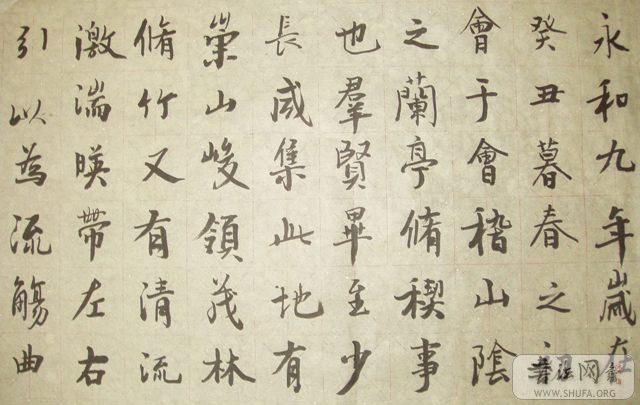 永和九年歲在
癸丑暮春之
會于會稽山陰
之蘭亭脩禊事
也羣賢畢至少
長咸集此地有
崇山峻領茂林
脩竹又有清流
激湍暎帶左右
引以為流觴曲
书法网
WWW.SHUFA.ORG